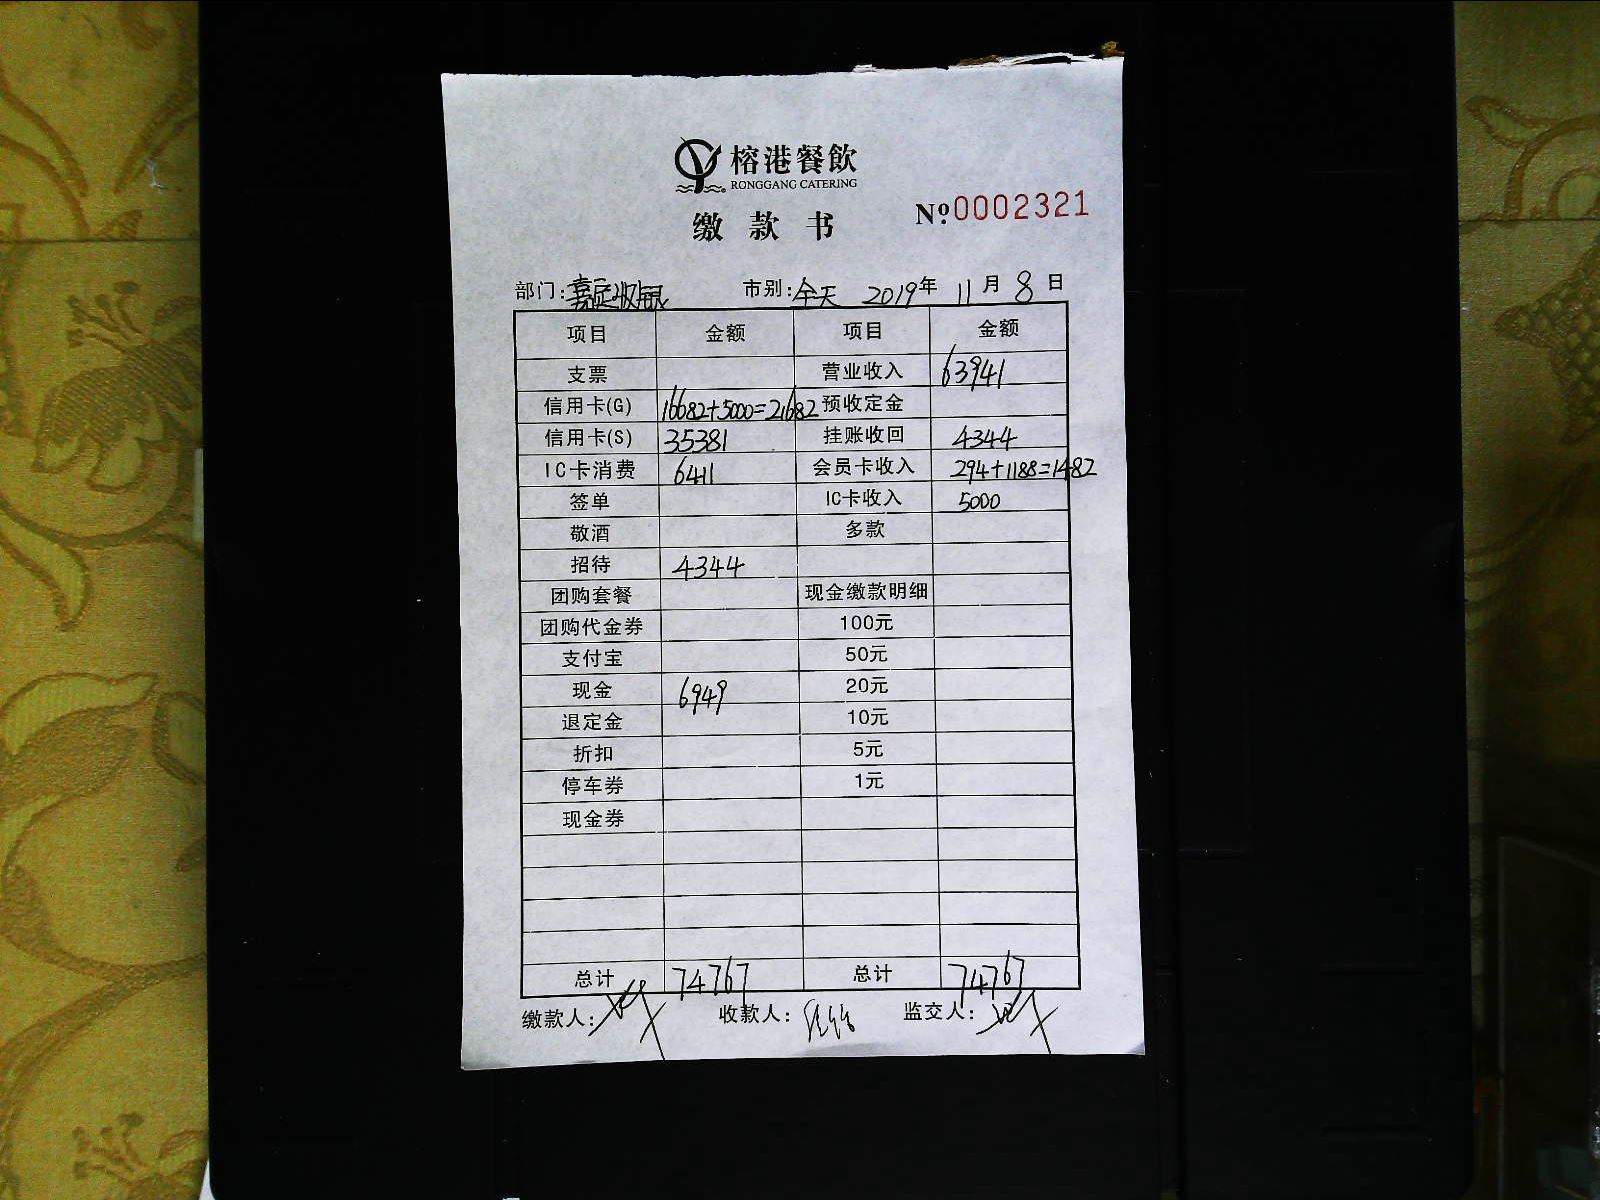 榕港餐飲
RONGGANG CATERING
缴款书 №0002321
部门:嘉定收银 市别:全天 2019年 11月 8日
项目 金额 项目 金额
支票 营业收入 63941
信用卡(G) 16682+5000=21682 预收定金
信用卡(S) 35381 挂账收回 4344
IC卡消费 6411 会员卡收入 294+1188=1482
签单 IC卡收入 5000
敬酒 多款
招待 4344
团购套餐 现金缴款明细
团购代金券 100元
支付宝 50元
现金 6949 20元
退定金 10元
折扣 5元
停车券 1元
现金券
总计 74767 总计 74767
缴款人: 收款人: 监交人: